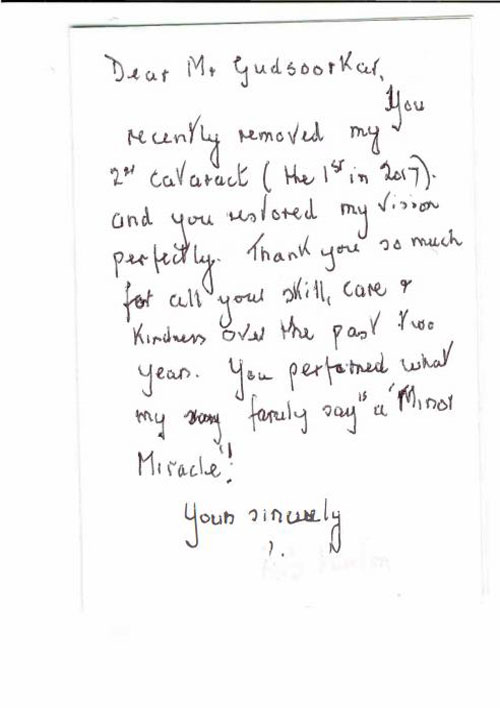 Dear Mr Gudsoorkar,
You
recently removed my
2nd cataract ( the 1st in 2017).
and you restored my vision
perfectly. Thank you so much
for all your skill, care &
kindness over the past two
years. You performed what
my family say is a "Minor
Miracle"!
Yours sincerely